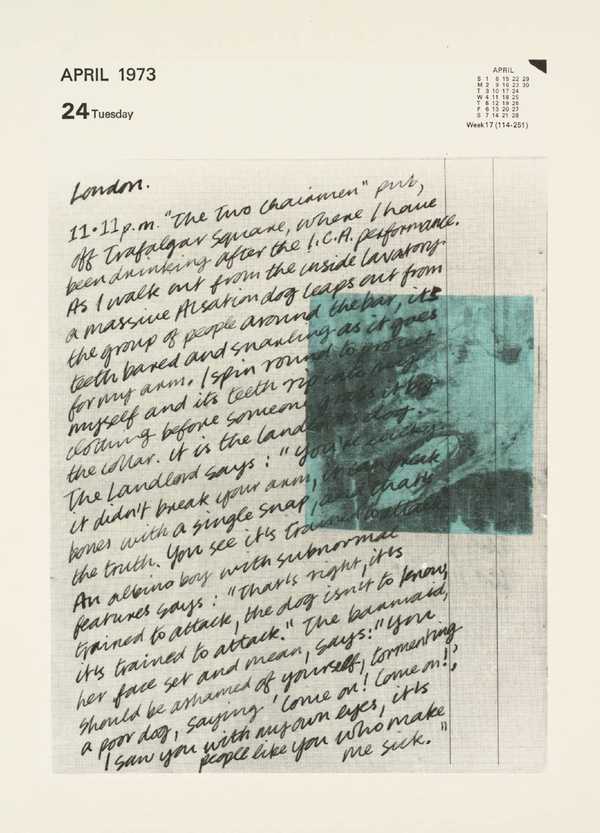 APRIL 1973
24 Tuesday
APRIL
S 1 8 15 22 29
M 2 9 16 23 30
T 3 10 17 24
W 4 11 18 25
T 5 12 19 26
F 6 13 20 27
S 7 14 21 28
Week 17 (114-251)
London.
11.11 p.m. "The Two Chairmen" pub,
off Trafalgar Square, where I have
been drinking after the I.C.A. performance.
As I walk out from the inside lavatory.
a massive Alsation dog leaps out from
the group of people around the bar, its
teeth bared and snarling as it goes
for my arm. I spin round to protect
myself and its teeth rip into my
clothing before someone it by
the collar. it is the landlord's dog.
The Landlord says: "You're lucky
it didn't break your arm, it can break
bones with a single snap, and that's
the truth. You see it's trained to attack
An albino boy with subnormal
features says: "That's right, it's
trained to attack, the dog isn't to know,
it's trained to attack." The barmaid,
her face set and mean, says: "You
should be ashamed of yourself, tormenting
a poor dog, saying 'Come on! Come on!',
I saw you with my own eyes, it's
people like you who make
me sick."